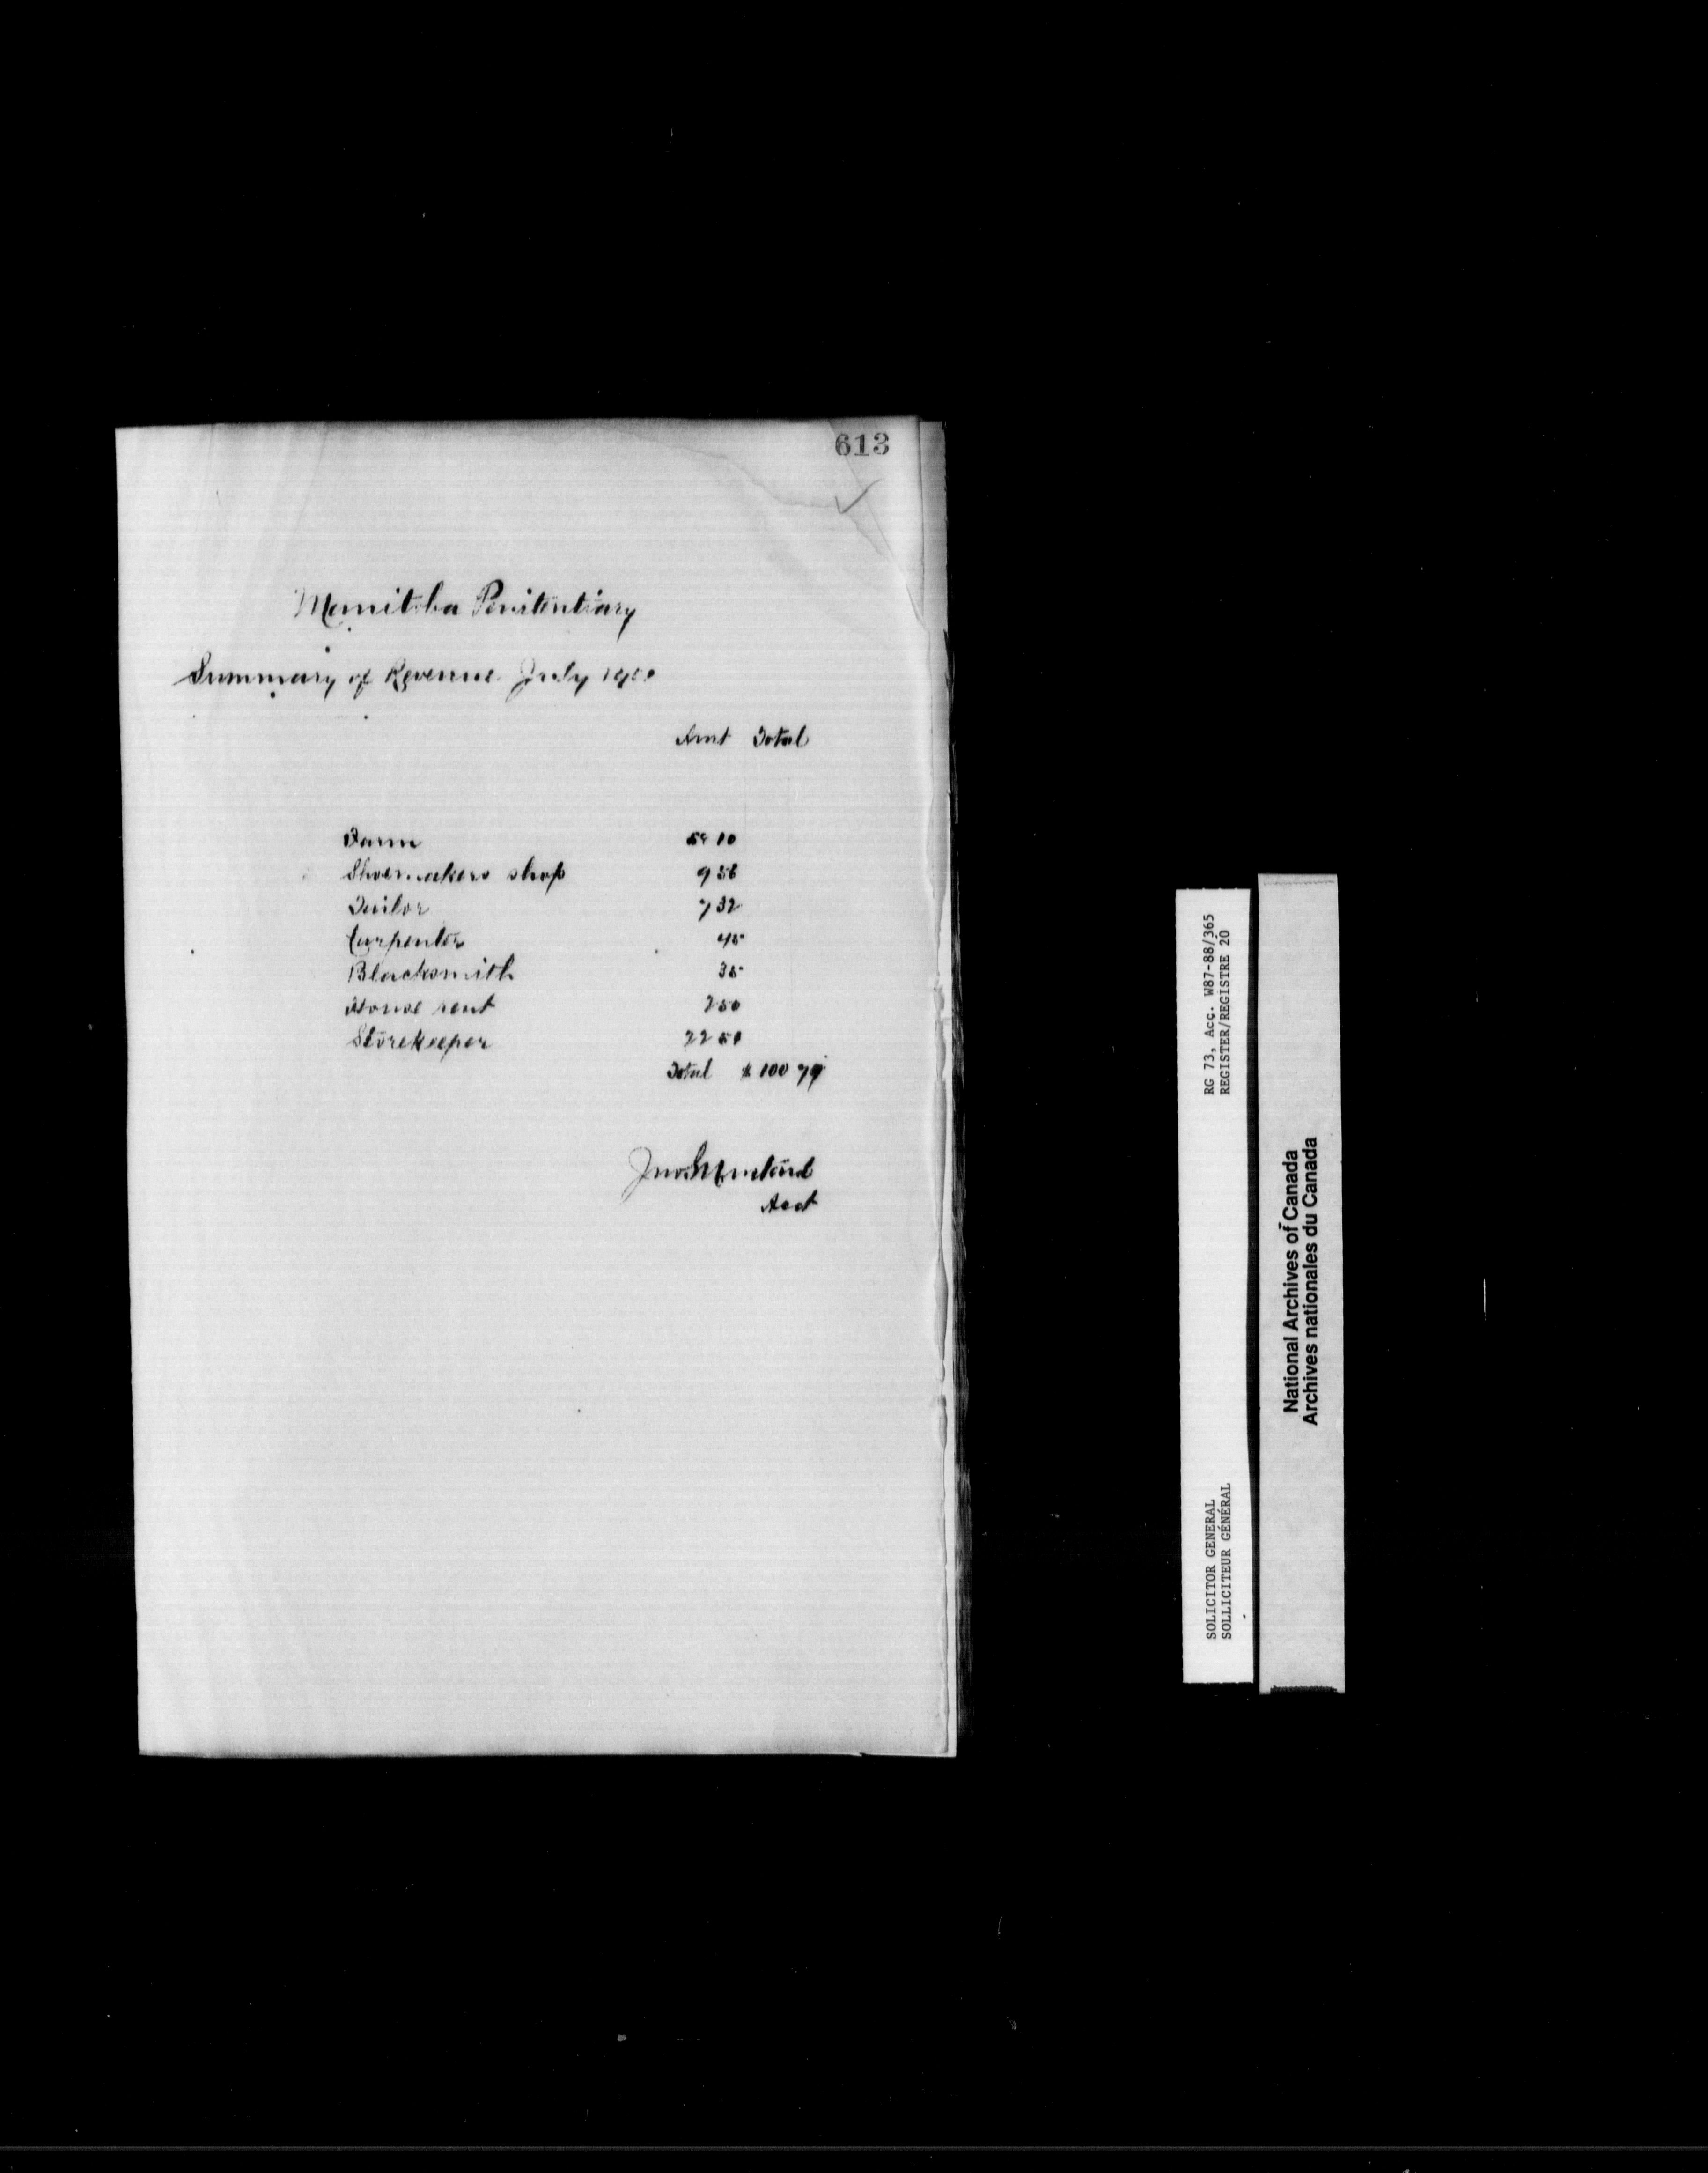 613
Manitoba Penitentiary
Summary of Revenue July 1900
Amt Total
Farm 58 10
Shoemakers shop 9 56
Tailor 7 32
Carpenter 45
Blacksmith 35
House rent 2 50
Storekeeper 22 50
Total $ 100
Mustard
Acct
SOLICITOR GENERAL RG 73, Acc. W87-88/365
SOLLICITEUR GÉNÉRAL REGISTER/REGISTRE 20
National Archives of Canada
Archives nationales du Canada